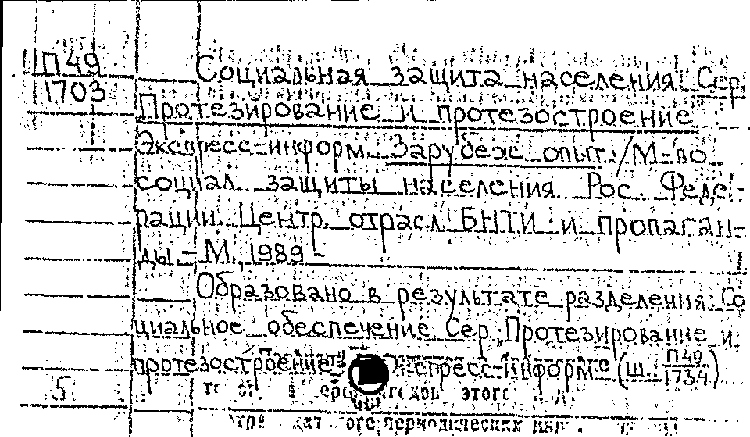 П49 Социальная защита населения. Сер.
1703 Протезирование и протезостроение
Экспресс-информ. Зарубеж. опыт. / М-во
социал. защиты населения Рос. Феде-
рации. Центр. отрасл. БНТИ и пропаган-
ды. - М., 1989 -
Образовано в результате разделения: Со
циальное обеспечение. Сер. Протезирование и
протезостроение. Экспресс-информ. (ш. П49/1734)
5 этого
периодических